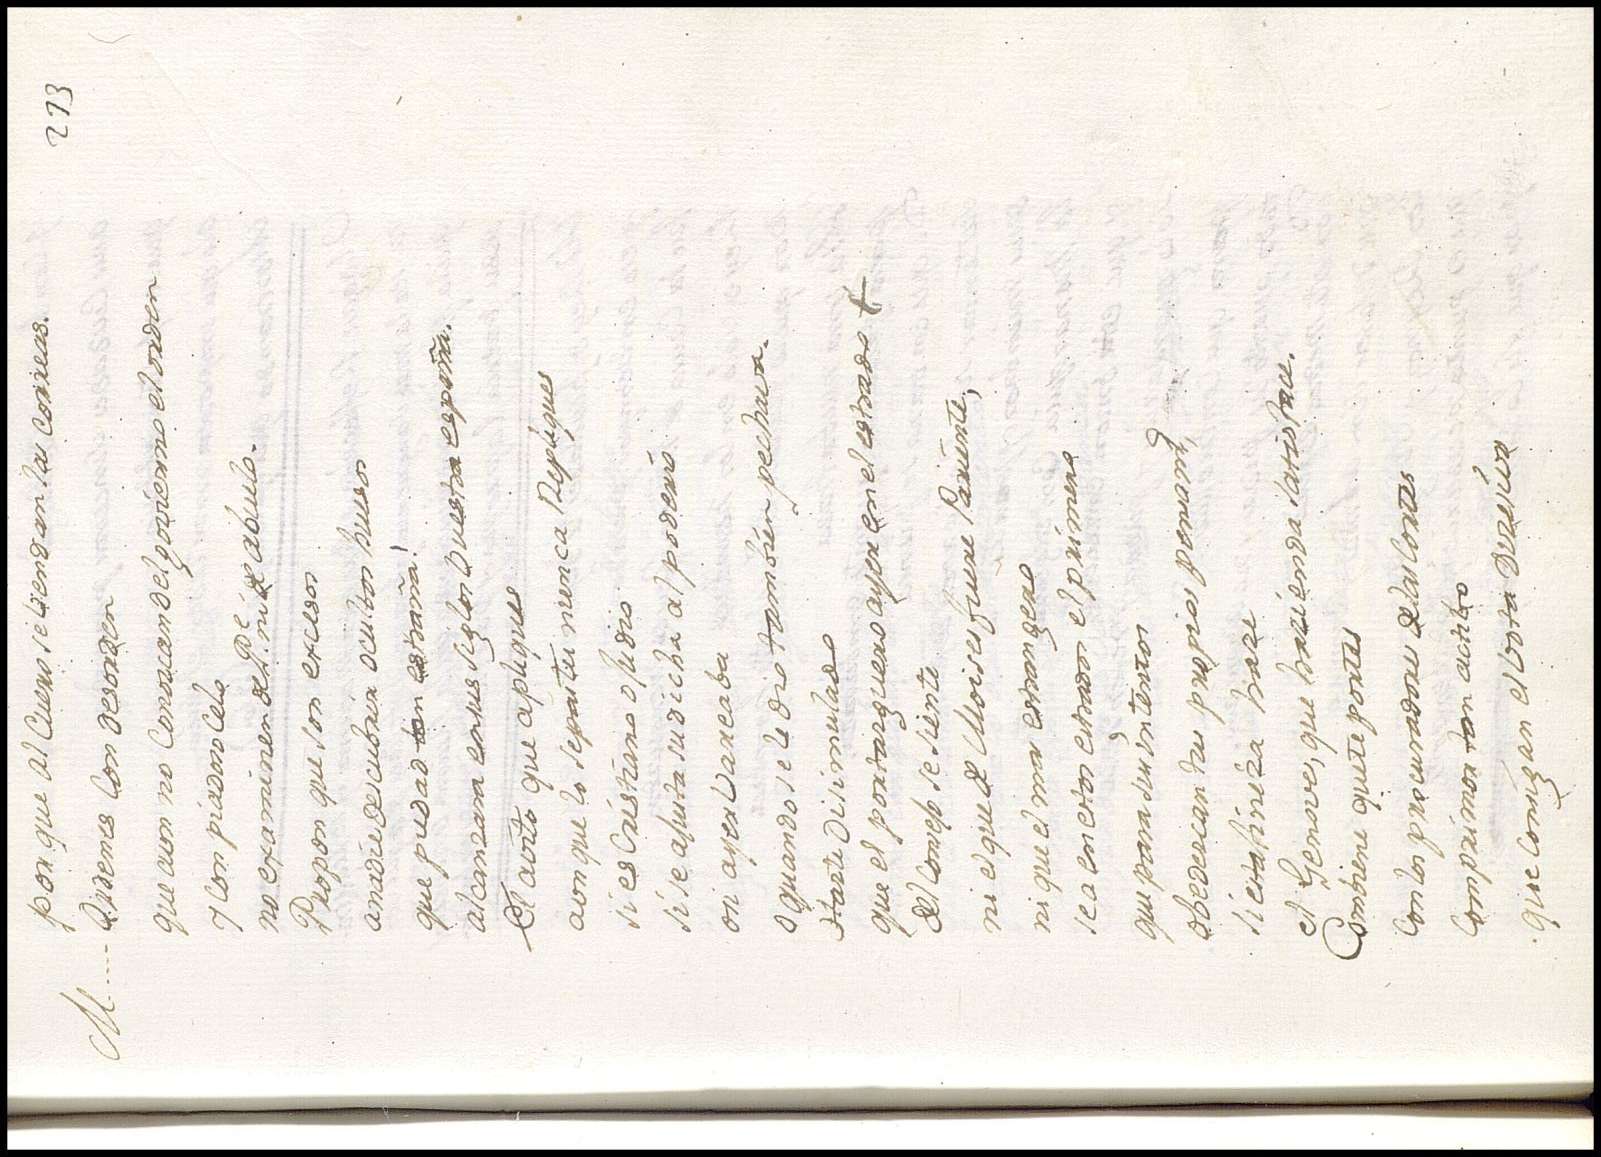 273
porque del Cuero se bendan las correas.
M..... Ordenes con desorden
que aun no conozcan del govierno el orden
y con piadoso celo
no examinen del Pe. ni de abuelo.
Propon que son excesos
a nadie descubrir ocultos huesos
que piedad tan estraña!
alcanzara en sus siglos vuestra españa.
El avito que apliques
aonque lo separtes nunca Repliques
si es Cristiano o Judio
si se ajusta su dicha al poderio
oi ayer barcaba
o quando se le dio tambien pechava.
Hazte disimulado
que el portazguero ayer en el estrado +
del Consejo se siente
ni el que de Moises fuere Pariente,
ni que el mas estrangero
sea en estos estados el primero
que para su intentos
obedezcan tus propios pensamtos,
si esta fineza haze
el Genoves, que haziendo a satisface.
Combiene que te portes
con los procuradores de las Cortes
comprimor tan activo
que corrijan el voto decisivo